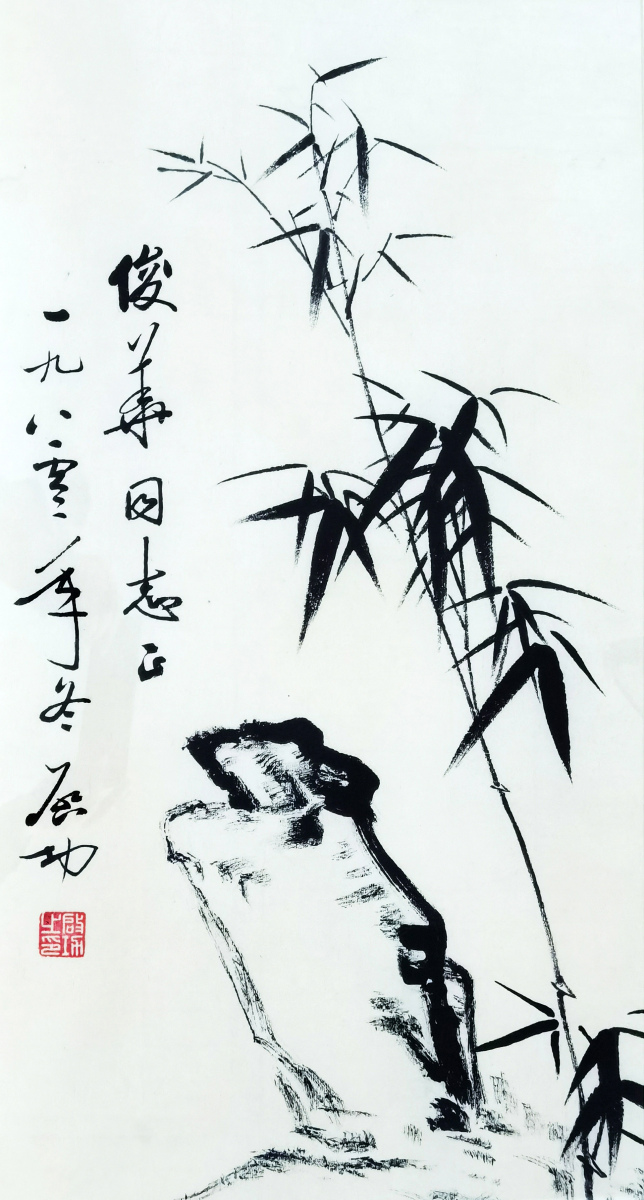 俊华同志正
一九八零年冬 启功
启功之印